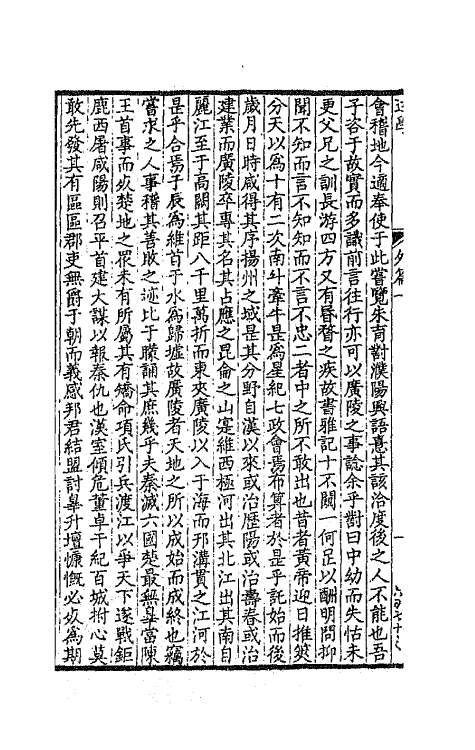 述學
外篇一
會稽地今適奉使于此嘗覽朱育對濮陽興語意其該洽度後之人不能也吾
子咨于故實而多識前言往行亦可以廣陵之事諗余乎對曰中幼而失怙未
更父兄之訓長游四方又有昬瞀之疾故書雅記十不闚一何足以酬明問抑
聞不知而言不知知而言不忠二者中之所不敢出也昔者黃帝迎日推筴
分天以為十有二次南斗牽牛是為星紀七政會焉布算者於是乎託始而後
歲月日時咸得其序揚州之域是其分野自漢以來或治歷陽或治壽春或治
建業而廣陵卒專其名其占應之昆侖之山寔維西極河出其北江出其南自
麗江至于高闕其距八千里萬折而東夾廣陵以入于海而邗溝貫之江河於
是乎合焉子辰為維首于水為歸墟故廣陵者天地之所以成始而成終也竊
嘗求之人事稽其善敗之迹比于矇誦其庶幾乎夫秦滅六國楚最無辠當陳
王首事而攻楚地之眾未有所屬其有矯命項氏引兵渡江以爭天下遂戰鉅
鹿西屠咸陽則召平首建大謀以報秦仇也漢室傾危董卓干紀百城拊心莫
敢先發其有區區郡吏無爵于朝而義感邦君結盟討辠升壇慷慨必死為期